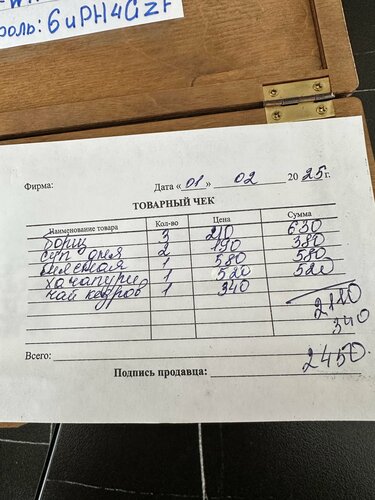 роль: 6uPH4GzF
Фирма: Дата «01» 02 2025г.
ТОВАРНЫЙ ЧЕК
Наименование товара Кол-во Цена Сумма
борщ 3 210 630
суп дня 2 190 380
1 580 580
хачапури 1 520 520
чай кедров 1 340
2110
340
Всего: 2450
Подпись продавца: